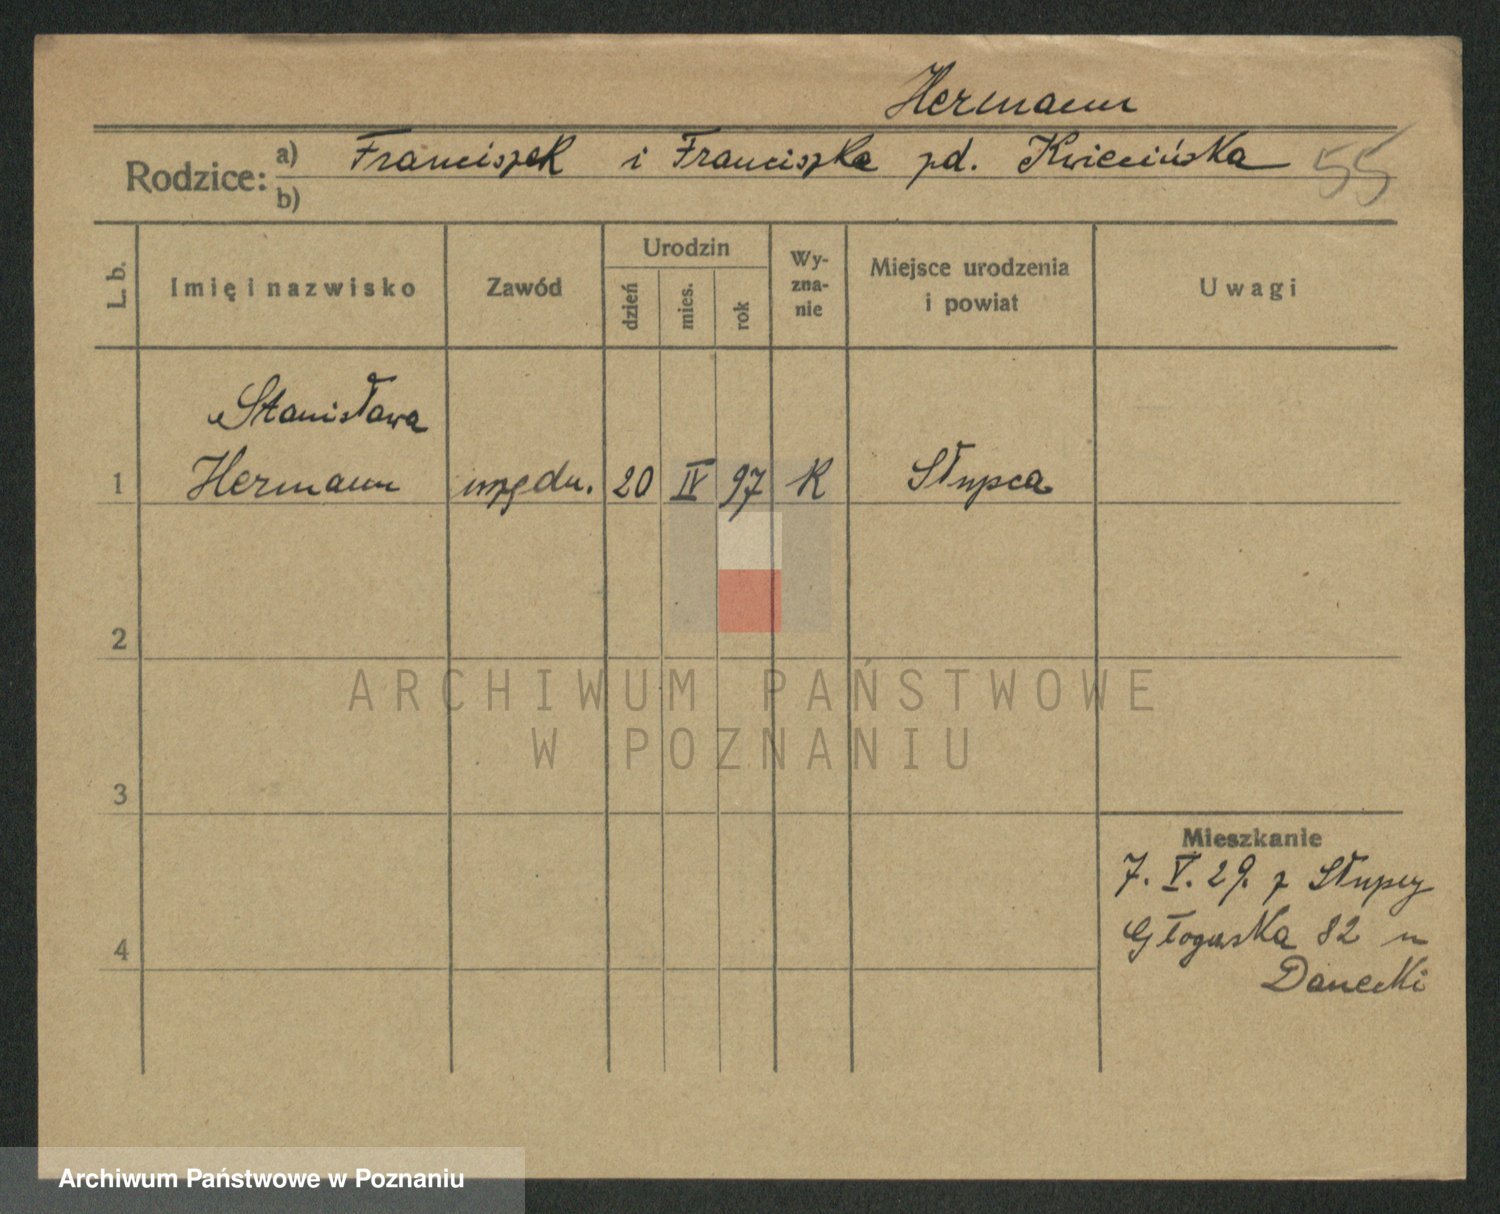 Hermann
Rodzice: a) Franciszek i Franciszka zd. Kwiecińska 55
b)
L. b. Imię i nazwisko Zawód Urodzin dzień mies. rok Wy-zna-nie Miejsce urodzenia i powiat Uwagi
Stanisława
1 Hermann 20 IV 97 K Słupca
2
3
4
Mieszkanie
7. V. 29. z Słupcy
Głogowska 82 u
Danecki
ARCHIWUM PAŃSTWOWE
W POZNANIU
Archiwum Państwowe w Poznaniu